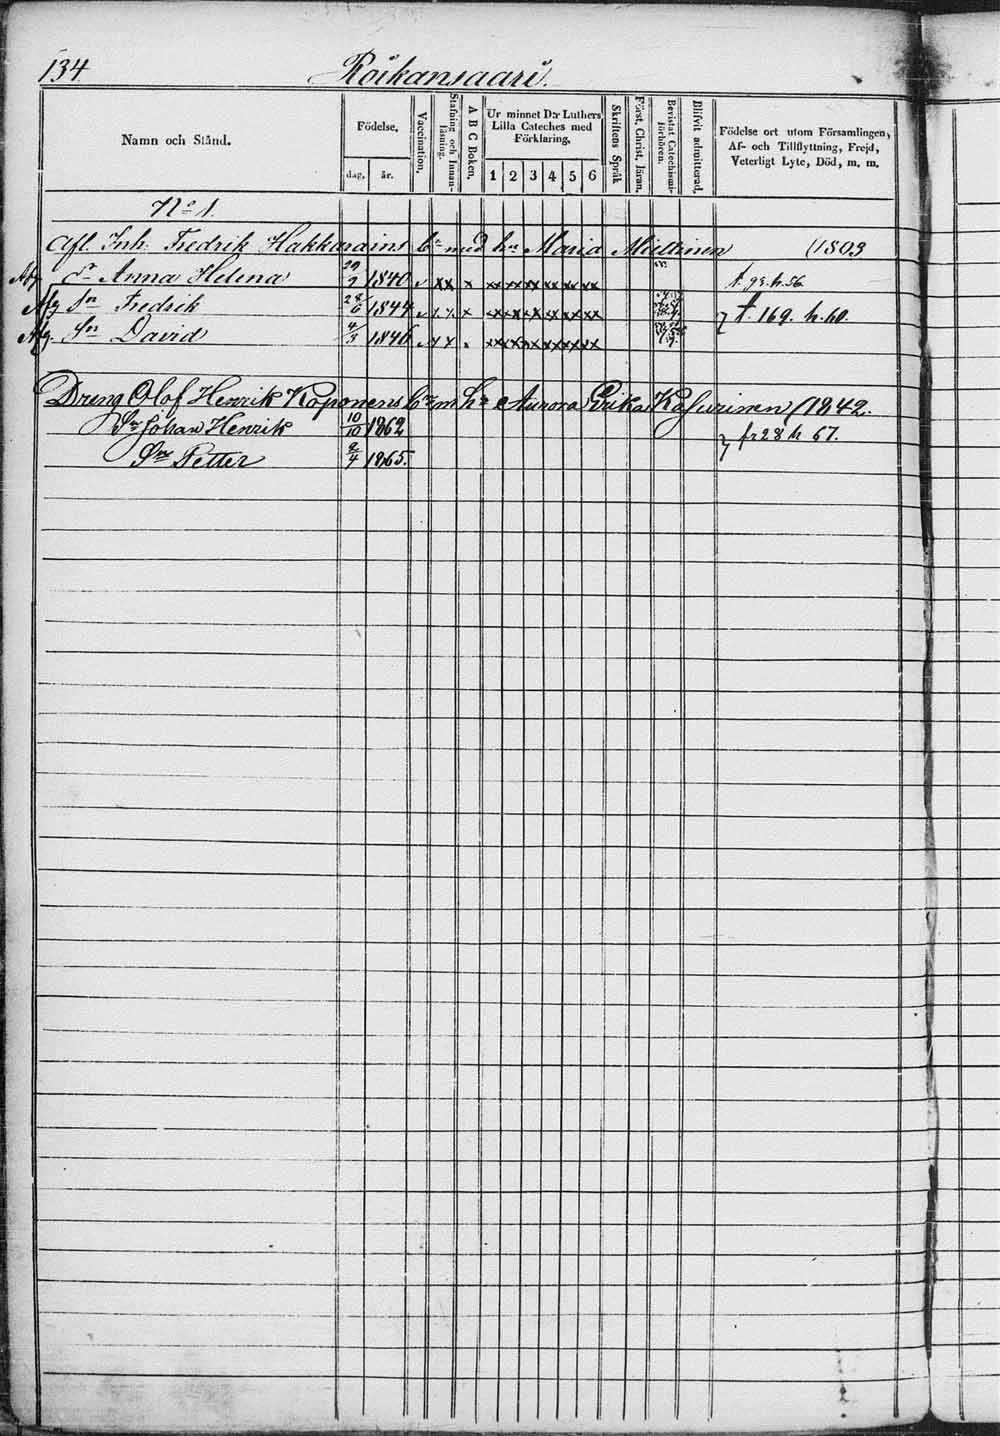 134 Röikansaari.
Namn och Stånd.
Födelse.
dag. år.
Vaccination.
Stafning och Innanläsning.
A B C Boken.
Ur minnet D:r Luthers
Lilla Cateches med
Förklaring.
1 2 3 4 5 6
Skriftens Språk
Först. Christ. läran.
Bevistat Catechismi-
förhören.
Blifvit admitterad.
Födelse ort utom Församlingen,
Af- och Tillflyttning, Frejd,
Veterligt Lyte, Död, m. m.
No 1.
Afl. Inh. Fredrik Hakkarains med Maria Miettinen (1803
Afg dr Anna Helena 1840 xx x xx xx xx xx xx xx t. 93. h. 56
Afg Sn Fredrik 28/6 1844 x xx xx xx xx xx xx
Afg. Sn David 4/3 1846 xx xx xx xx xx xx } t. 169. h. 60.
Dreng Olof Henrik Koponens m hu Aurora Erika Kasurinen (1842.
Sn Johan Henrik 10/10 1862
Sn Petter 2/4 1865. } fr 28 h 67.